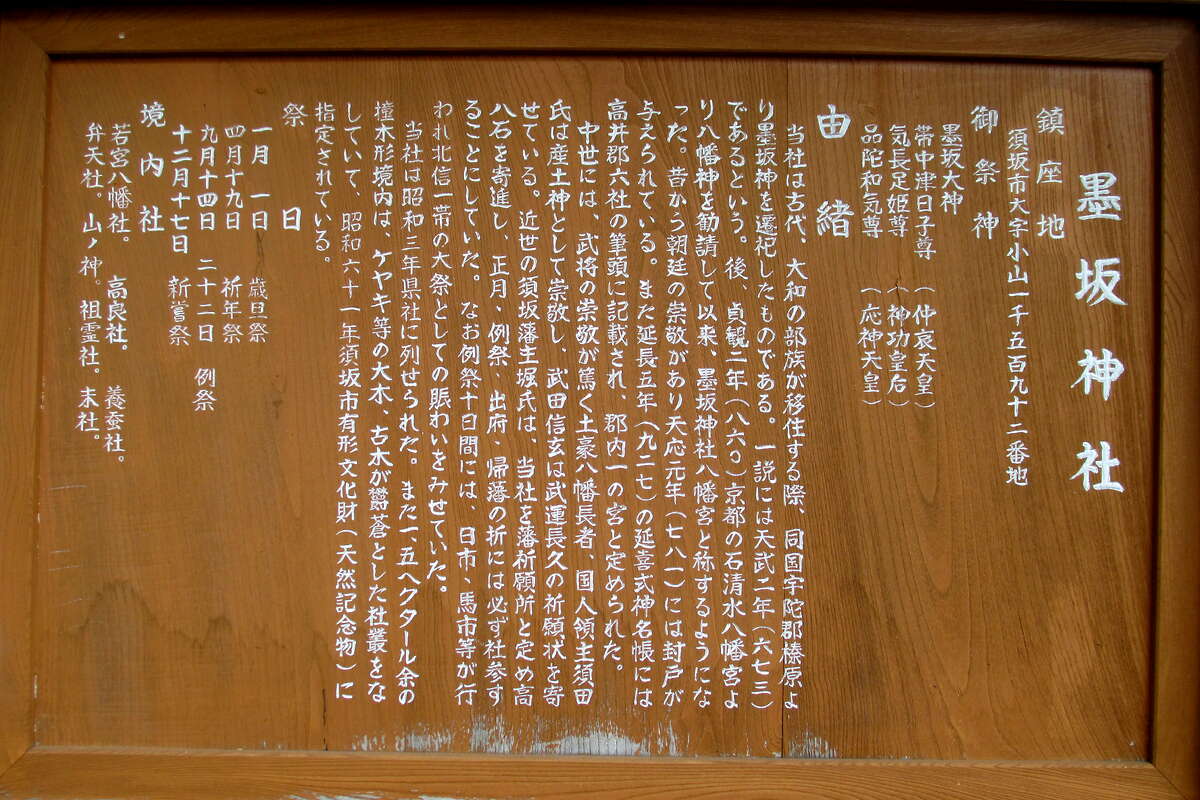 墨坂神社
鎮座地
須坂市大字小山一千五百九十二番地
御祭神
墨坂大神
帯中津日子尊　（仲哀天皇）
気長足姫尊　（神功皇后）
品陀和気尊　（応神天皇）
由緒
当社は古代、大和の部族が移住する際、同国宇陀郡榛原よ
り墨坂神を遷祀したものである。一説には天武二年（六七三）
であるという。後、貞観二年（八六〇）京都の石清水八幡宮よ
り八幡神を勧請して以来、墨坂神社八幡宮と称するようにな
った。昔から朝廷の崇敬があり天応元年（七八一）には封戸が
与えられている。また延長五年（九二七）の延喜式神名帳には
高井郡六社の筆頭に記載され、郡内一の宮と定められた。
中世には、武将の崇敬が篤く土豪八幡長者、国人領主須田
氏は産土神として崇敬し、武田信玄は武運長久の祈願状を寄
せている。近世の須坂藩主堀氏は、当社を藩祈願所と定め高
八石を寄進し、正月、例祭、出府、帰藩の折には必ず社参す
ることにしていた。なお例祭十日間には、日市、馬市等が行
われ北信一帯の大祭としての賑わいをみせていた。
当社は昭和三年県社に列せられた。また一、五ヘクタール余の
撞木形境内は、ケヤキ等の大木、古木が欝蒼とした社叢をな
していて、昭和六十一年須坂市有形文化財（天然記念物）に
指定されている。
祭日
一月一日　歳旦祭
四月十九日　祈年祭
九月十四日　二十二日　例祭
十二月十七日　新嘗祭
境内社
若宮八幡社。　高良社。　養蚕社。
弁天社。山ノ神。祖霊社。末社。